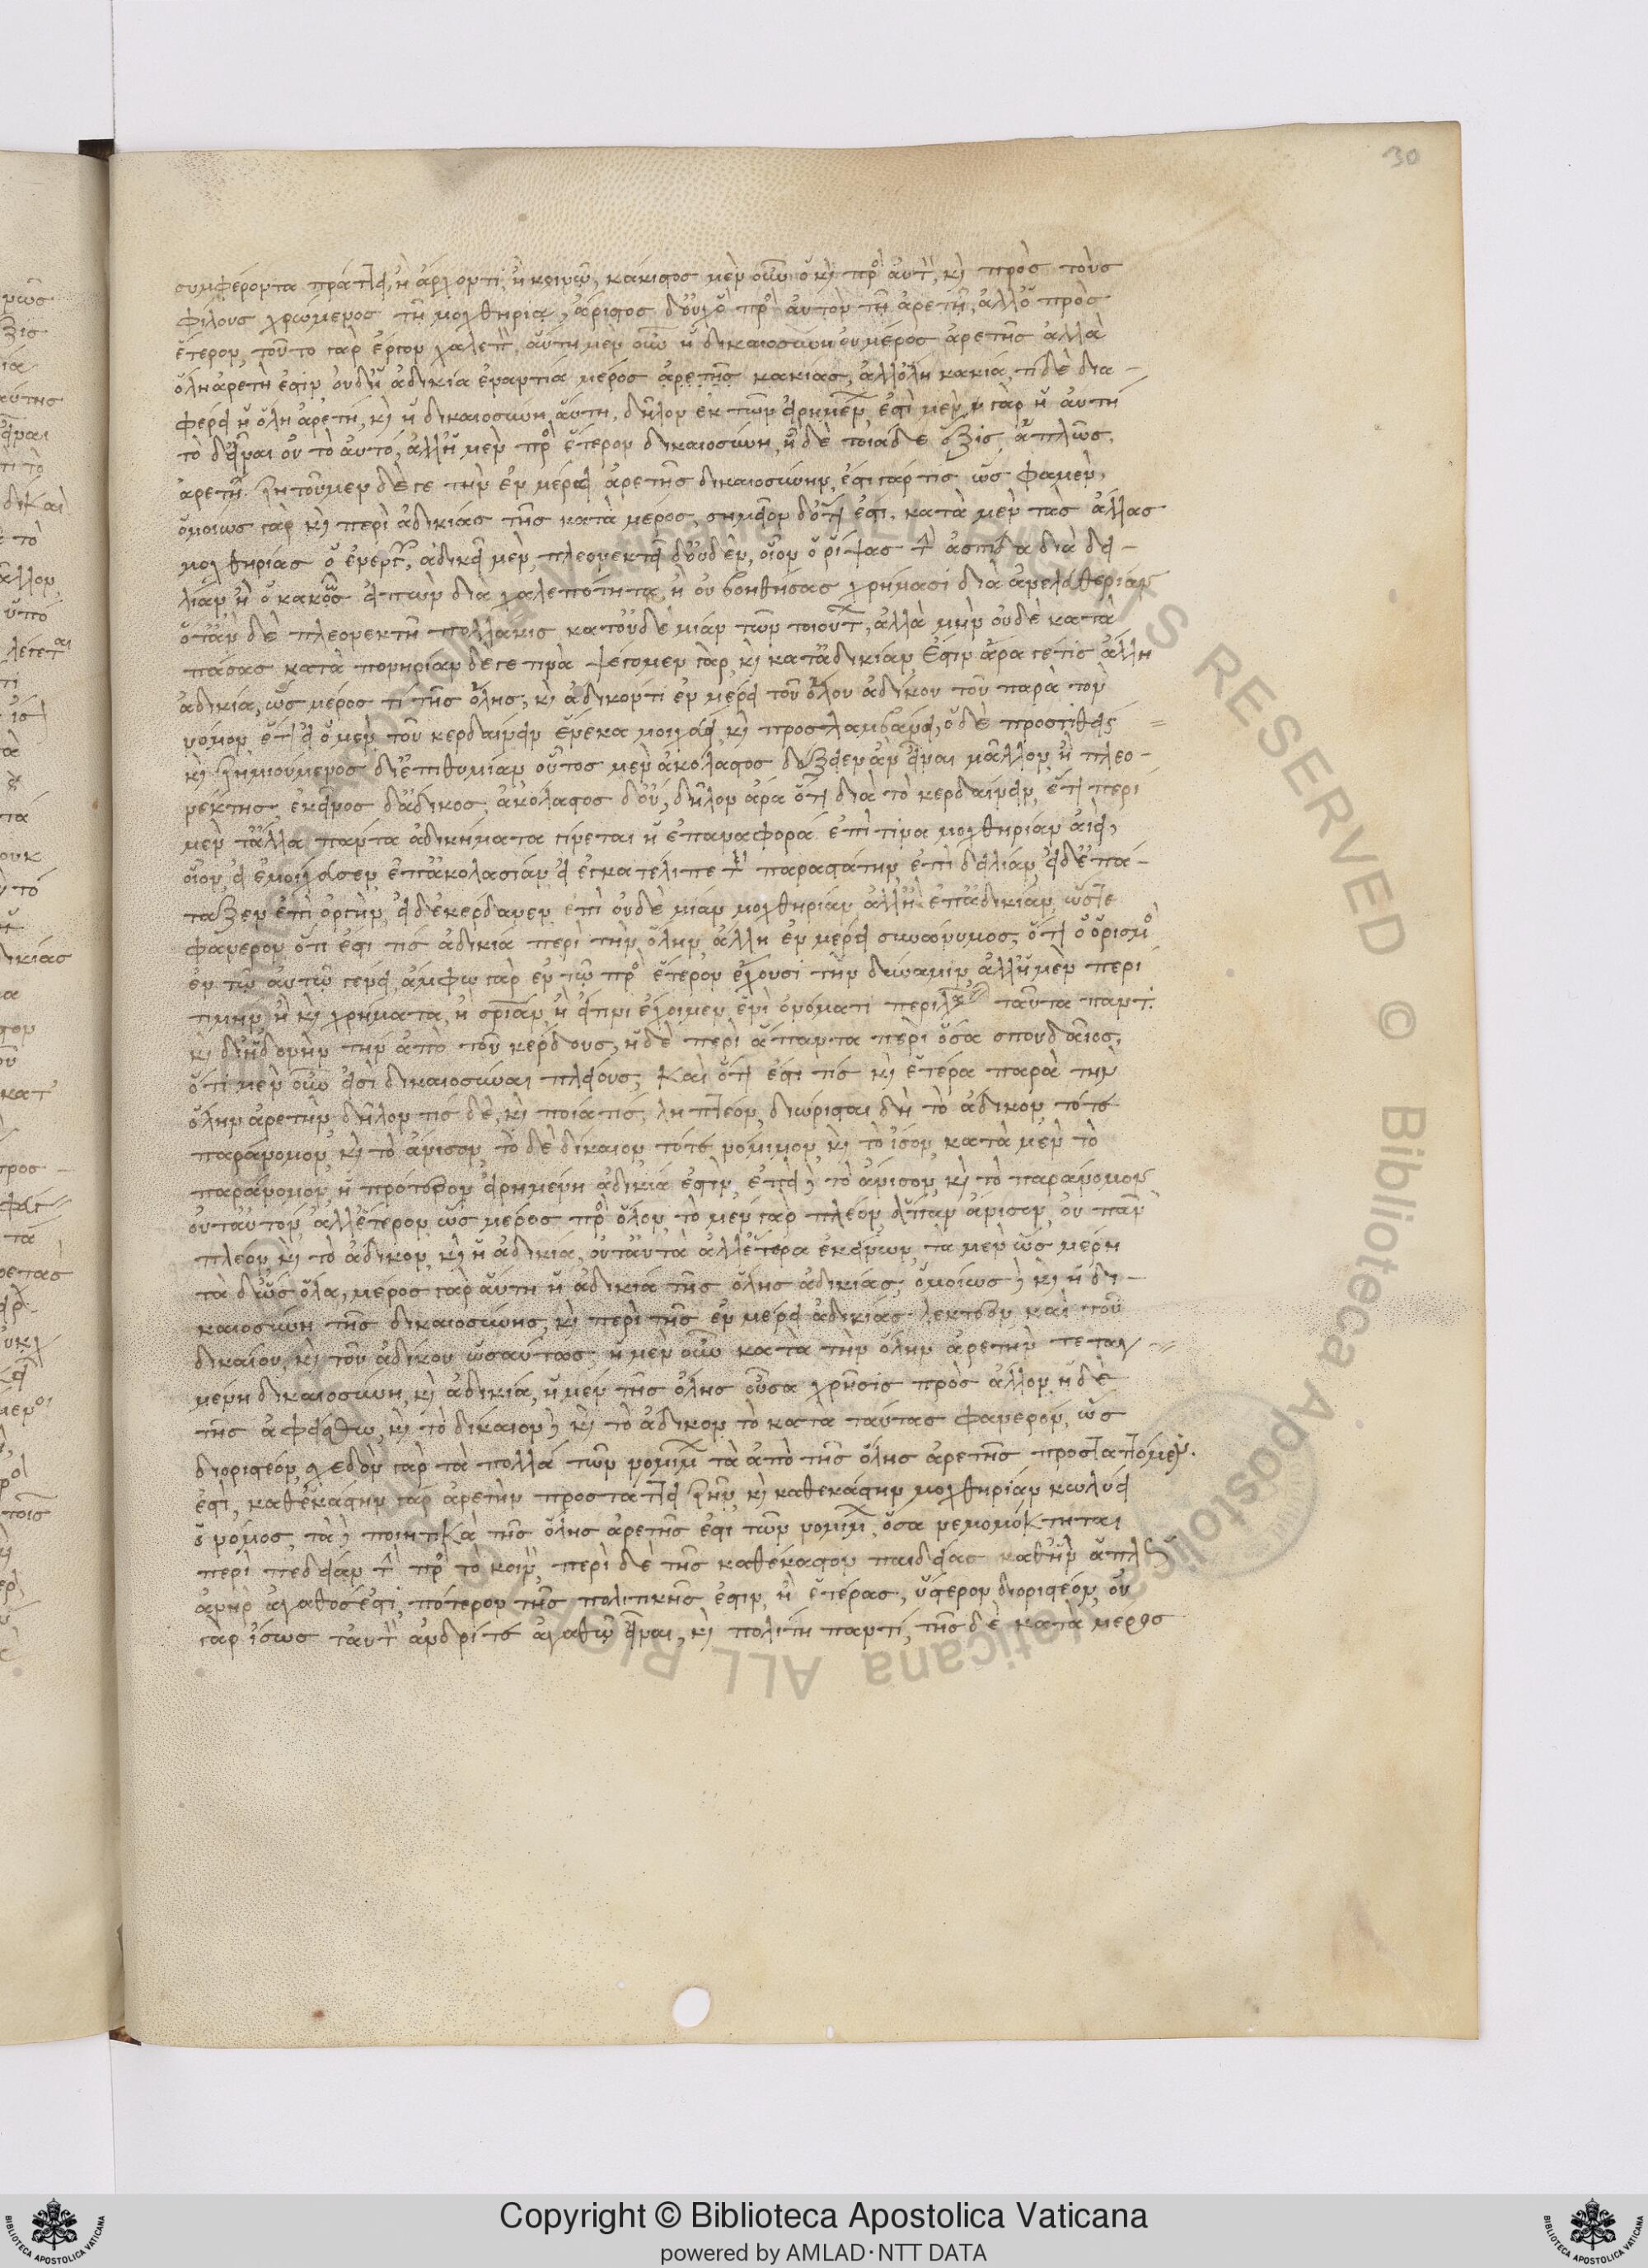 30
συμφέροντα πράττει, ἢ ἄρχοντι ἢ κοινῷ, κάκιστος μὲν οὖν ὁ καὶ πρὸς αὐτὸν καὶ πρὸς τοὺς
φίλους χρώμενος τῇ μοχθηρίᾳ, ἄριστος δ' οὐχ ὁ πρὸς αὐτὸν τῇ ἀρετῇ, ἀλλ' ὁ πρὸς
ἕτερον, τοῦτο γὰρ ἔργον χαλεπόν, αὕτη μὲν οὖν ἡ δικαιοσύνη οὐ μέρος ἀρετῆς ἀλλὰ
ὅλη ἀρετή ἐστιν, οὐδ' ἡ ἀδικία ἐναντία μέρος ἀρετῆς κακίας, ἀλλ' ὅλη κακία, τί δὲ δια-
φέρει ἡ ὅλη ἀρετή, καὶ ἡ δικαιοσύνη αὕτη, δῆλον ἐκ τῶν εἰρημένων, ἐστὶ μὲν γὰρ ἡ αὐτή
τὸ δ' εἶναι οὐ τὸ αὐτό, ἀλλ' ἡ μὲν πρὸς ἕτερον δικαιοσύνη, ἡ δὲ τοιάδε ἕξις ἁπλῶς,
ἀρετή. ζητοῦμεν δέ γε τὴν ἐν μέρει ἀρετῆς δικαιοσύνην, ἔστι γάρ τις ὥς φαμεν,
ὁμοίως γὰρ καὶ περὶ ἀδικίας τῆς κατὰ μέρος, σημεῖον δ' ὅτι ἐστι. κατὰ μὲν τὰς ἄλλας
μοχθηρίας ὁ ἐνεργῶν, ἀδικεῖ μὲν, πλεονεκτεῖ δ' οὐδέν, οἷον ὁ ῥίψας τὴν ἀσπίδα διὰ δει-
λίαν ἢ ὁ κακῶς εἰπὼν διὰ χαλεπότητα, ἢ οὐ βοηθήσας χρήμασι διὰ ἀνελευθερίαν
ὅταν δὲ πλεονεκτῇ πολλάκις κατ' οὐδὲ μίαν τῶν τοιούτων, ἀλλὰ μὴν οὐδὲ κατὰ
πάσας κατὰ πονηρίαν δέ γε τινὰ ψέγομεν γὰρ, καὶ κατ' ἀδικίαν ἔστιν ἄρα γέ τις ἄλλη
ἀδικία, ὡς μέρος τι τῆς ὅλης, καὶ ἄδικόν τι ἐν μέρει τοῦ ὅλου ἀδίκου τοῦ παρὰ τὸν
νόμον, ἔτι εἰ ὁ μὲν τοῦ κερδαίνειν ἕνεκα μοιχεύει καὶ προσλαμβάνει, ὁ δὲ προστιθεὶς
καὶ ζημιούμενος δι' ἐπιθυμίαν οὗτος μὲν ἀκόλαστος δόξειεν ἂν εἶναι μᾶλλον ἢ πλεο-
νέκτης, ἐκεῖνος δ' ἄδικος ἀκόλαστος δ' οὔ, δῆλον ἄρα ὅτι διὰ τὸ κερδαίνειν, ἔτι περὶ
μὲν τἆλλα πάντα ἀδικήματα γίνεται ἡ ἐπαναφορά ἐπί τινα μοχθηρίαν ἀεί,
οἷον εἰ ἐμοίχευσεν ἐπ' ἀκολασίαν εἰ ἐγκατέλιπε τὸν παραστάτην, ἐπὶ δειλίαν, εἰ δ' ἐπά-
ταξεν ἐπὶ ὀργήν, εἰ δ' ἐκέρδανεν ἐπὶ οὐδὲ μίαν μοχθηρίαν ἀλλ' ἢ ἐπ' ἀδικίαν, ὥστε
φανερὸν ὅτι ἔστι τις ἀδικία περὶ τὴν ὅλην ἄλλη ἐν μέρει συνώνυμος, ὅτι ὁ ὁρισμὸς
ἐν τῷ αὐτῷ γένει, ἄμφω γὰρ ἐν τῷ πρὸς ἕτερον ἔχουσι τὴν δύναμιν, ἀλλ' ἡ μὲν περὶ
τιμὴν ἢ καὶ χρήματα, ἢ σωτηρίαν, ἢ εἴ τινι ἔχοιμεν ἑνὶ ὀνόματι περιλαβεῖν ταῦτα πάντα.
καὶ δι' ἡδονὴν τὴν ἀπὸ τοῦ κέρδους, ἡ δὲ περὶ ἅπαντα περὶ ὅσα σπουδαῖος,
ὅτι μὲν οὖν εἰσὶ δικαιοσύναι πλείους, καὶ ὅτι ἔστι τις καὶ ἑτέρα παρὰ τὴν
ὅλην ἀρετὴν δῆλον τίς δὲ, καὶ ποία τίς, ληπτέον, διώρισται δὴ τὸ ἄδικον τό τε
παράνομον, καὶ τὸ ἄνισον, τὸ δὲ δίκαιον τό τε νόμιμον, καὶ τὸ ἴσον, κατὰ μὲν τὸ
παράνομον, ἡ πρότερον εἰρημένη ἀδικία ἐστίν, ἐπεὶ δὲ τὸ ἄνισον, καὶ τὸ παράνομον
οὐ ταὐτὸν ἀλλ' ἕτερον ὡς μέρος πρὸς ὅλον, τὸ μὲν γὰρ πλέον ἅπαν ἄνισον, οὐ πᾶν
πλέον, καὶ τὸ ἄδικον, καὶ ἡ ἀδικία, οὐ ταὐτὰ ἀλλ' ἕτερα ἐκείνων, τὰ μὲν ὡς μέρη
τὰ δ' ὡς ὅλα, μέρος γὰρ αὕτη ἡ ἀδικία τῆς ὅλης ἀδικίας, ὁμοίως δὲ καὶ ἡ δι-
καιοσύνη τῆς δικαιοσύνης, καὶ περὶ τῆς ἐν μέρει ἀδικίας λεκτέον, καὶ τοῦ
δικαίου, καὶ τοῦ ἀδίκου ὡσαύτως, ἡ μὲν οὖν κατὰ τὴν ὅλην ἀρετὴν τεταγ-
μένη δικαιοσύνη, καὶ ἀδικία, ἡ μὲν τῆς ὅλης οὖσα χρῆσις πρὸς ἄλλον, ἡ δὲ
τῆς ἀφείσθω, καὶ τὸ δίκαιον δὲ καὶ τὸ ἄδικον τὸ κατὰ ταύτας φανερόν, ὡς
διοριστέον, σχεδὸν γὰρ τὰ πολλὰ τῶν νομίμων τὰ ἀπὸ τῆς ὅλης ἀρετῆς προσταττόμενα.
ἐστὶ, καθ' ἑκάστην γὰρ ἀρετὴν προστάττει ζῆν, καὶ καθ' ἑκάστην μοχθηρίαν κωλύει
ὁ νόμος, τὰ δὲ ποιητικὰ τῆς ὅλης ἀρετῆς ἐστι τῶν νομίμων, ὅσα νενομοθέτηται
περὶ πεδείαν τὴν πρὸς τὸ κοινόν, περὶ δὲ τῆς καθ' ἕκαστον παιδείας καθ' ἣν ἁπλῶς
ἀνὴρ ἀγαθός ἐστι, πότερον τῆς πολιτικῆς ἐστιν, ἢ ἑτέρας, ὕστερον διοριστέον, οὐ
γὰρ ἴσως ταὐτὸν ἀνδρί τε ἀγαθῷ εἶναι, καὶ πολίτῃ παντί, τῆς δὲ κατὰ μέρος
Copyright © Biblioteca Apostolica Vaticana
powered by AMLAD·NTT DATA